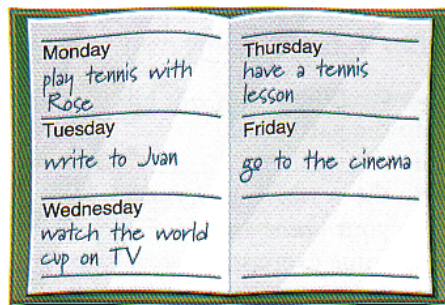 Monday
play tennis with
Rose
Tuesday
write to Juan
Wednesday
watch the world
cup on TV
Thursday
have a tennis
lesson
Friday
go to the cinema